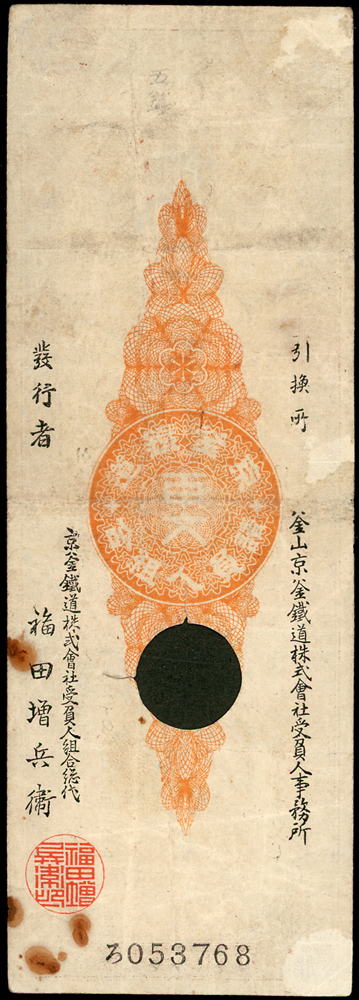 引換所
釜山京釜鐵道株式會社受負人事務所
發行者
京釜鐵道株式會社受負人組合總代
福田增兵衛
ろ053768